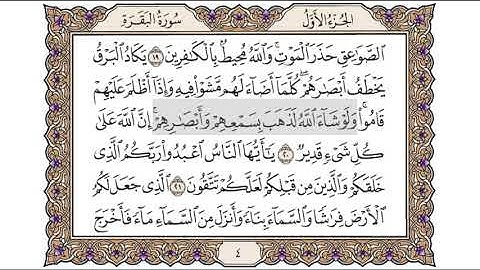 الجزء الأول
سورة البقرة
ٱلصَّوَٰعِقِ حَذَرَ ٱلْمَوْتِ ۚ وَٱللَّهُ مُحِيطٌۢ بِٱلْكَٰفِرِينَ ١٩ يَكَادُ ٱلْبَرْقُ
يَخْطَفُ أَبْصَٰرَهُمْ ۖ كُلَّمَآ أَضَآءَ لَهُم مَّشَوْا۟ فِيهِ وَإِذَآ أَظْلَمَ عَلَيْهِمْ
قَامُوا۟ ۚ وَلَوْ شَآءَ ٱللَّهُ لَذَهَبَ بِسَمْعِهِمْ وَأَبْصَٰرِهِمْ ۚ إِنَّ ٱللَّهَ عَلَىٰ
كُلِّ شَىْءٍ قَدِيرٌ ٢٠ يَٰٓأَيُّهَا ٱلنَّاسُ ٱعْبُدُوا۟ رَبَّكُمُ ٱلَّذِى
خَلَقَكُمْ وَٱلَّذِينَ مِن قَبْلِكُمْ لَعَلَّكُمْ تَتَّقُونَ ٢١ ٱلَّذِى جَعَلَ لَكُمُ
ٱلْأَرْضَ فِرَٰشًا وَٱلسَّمَآءَ بِنَآءً وَأَنزَلَ مِنَ ٱلسَّمَآءِ مَآءً فَأَخْرَجَ
٤